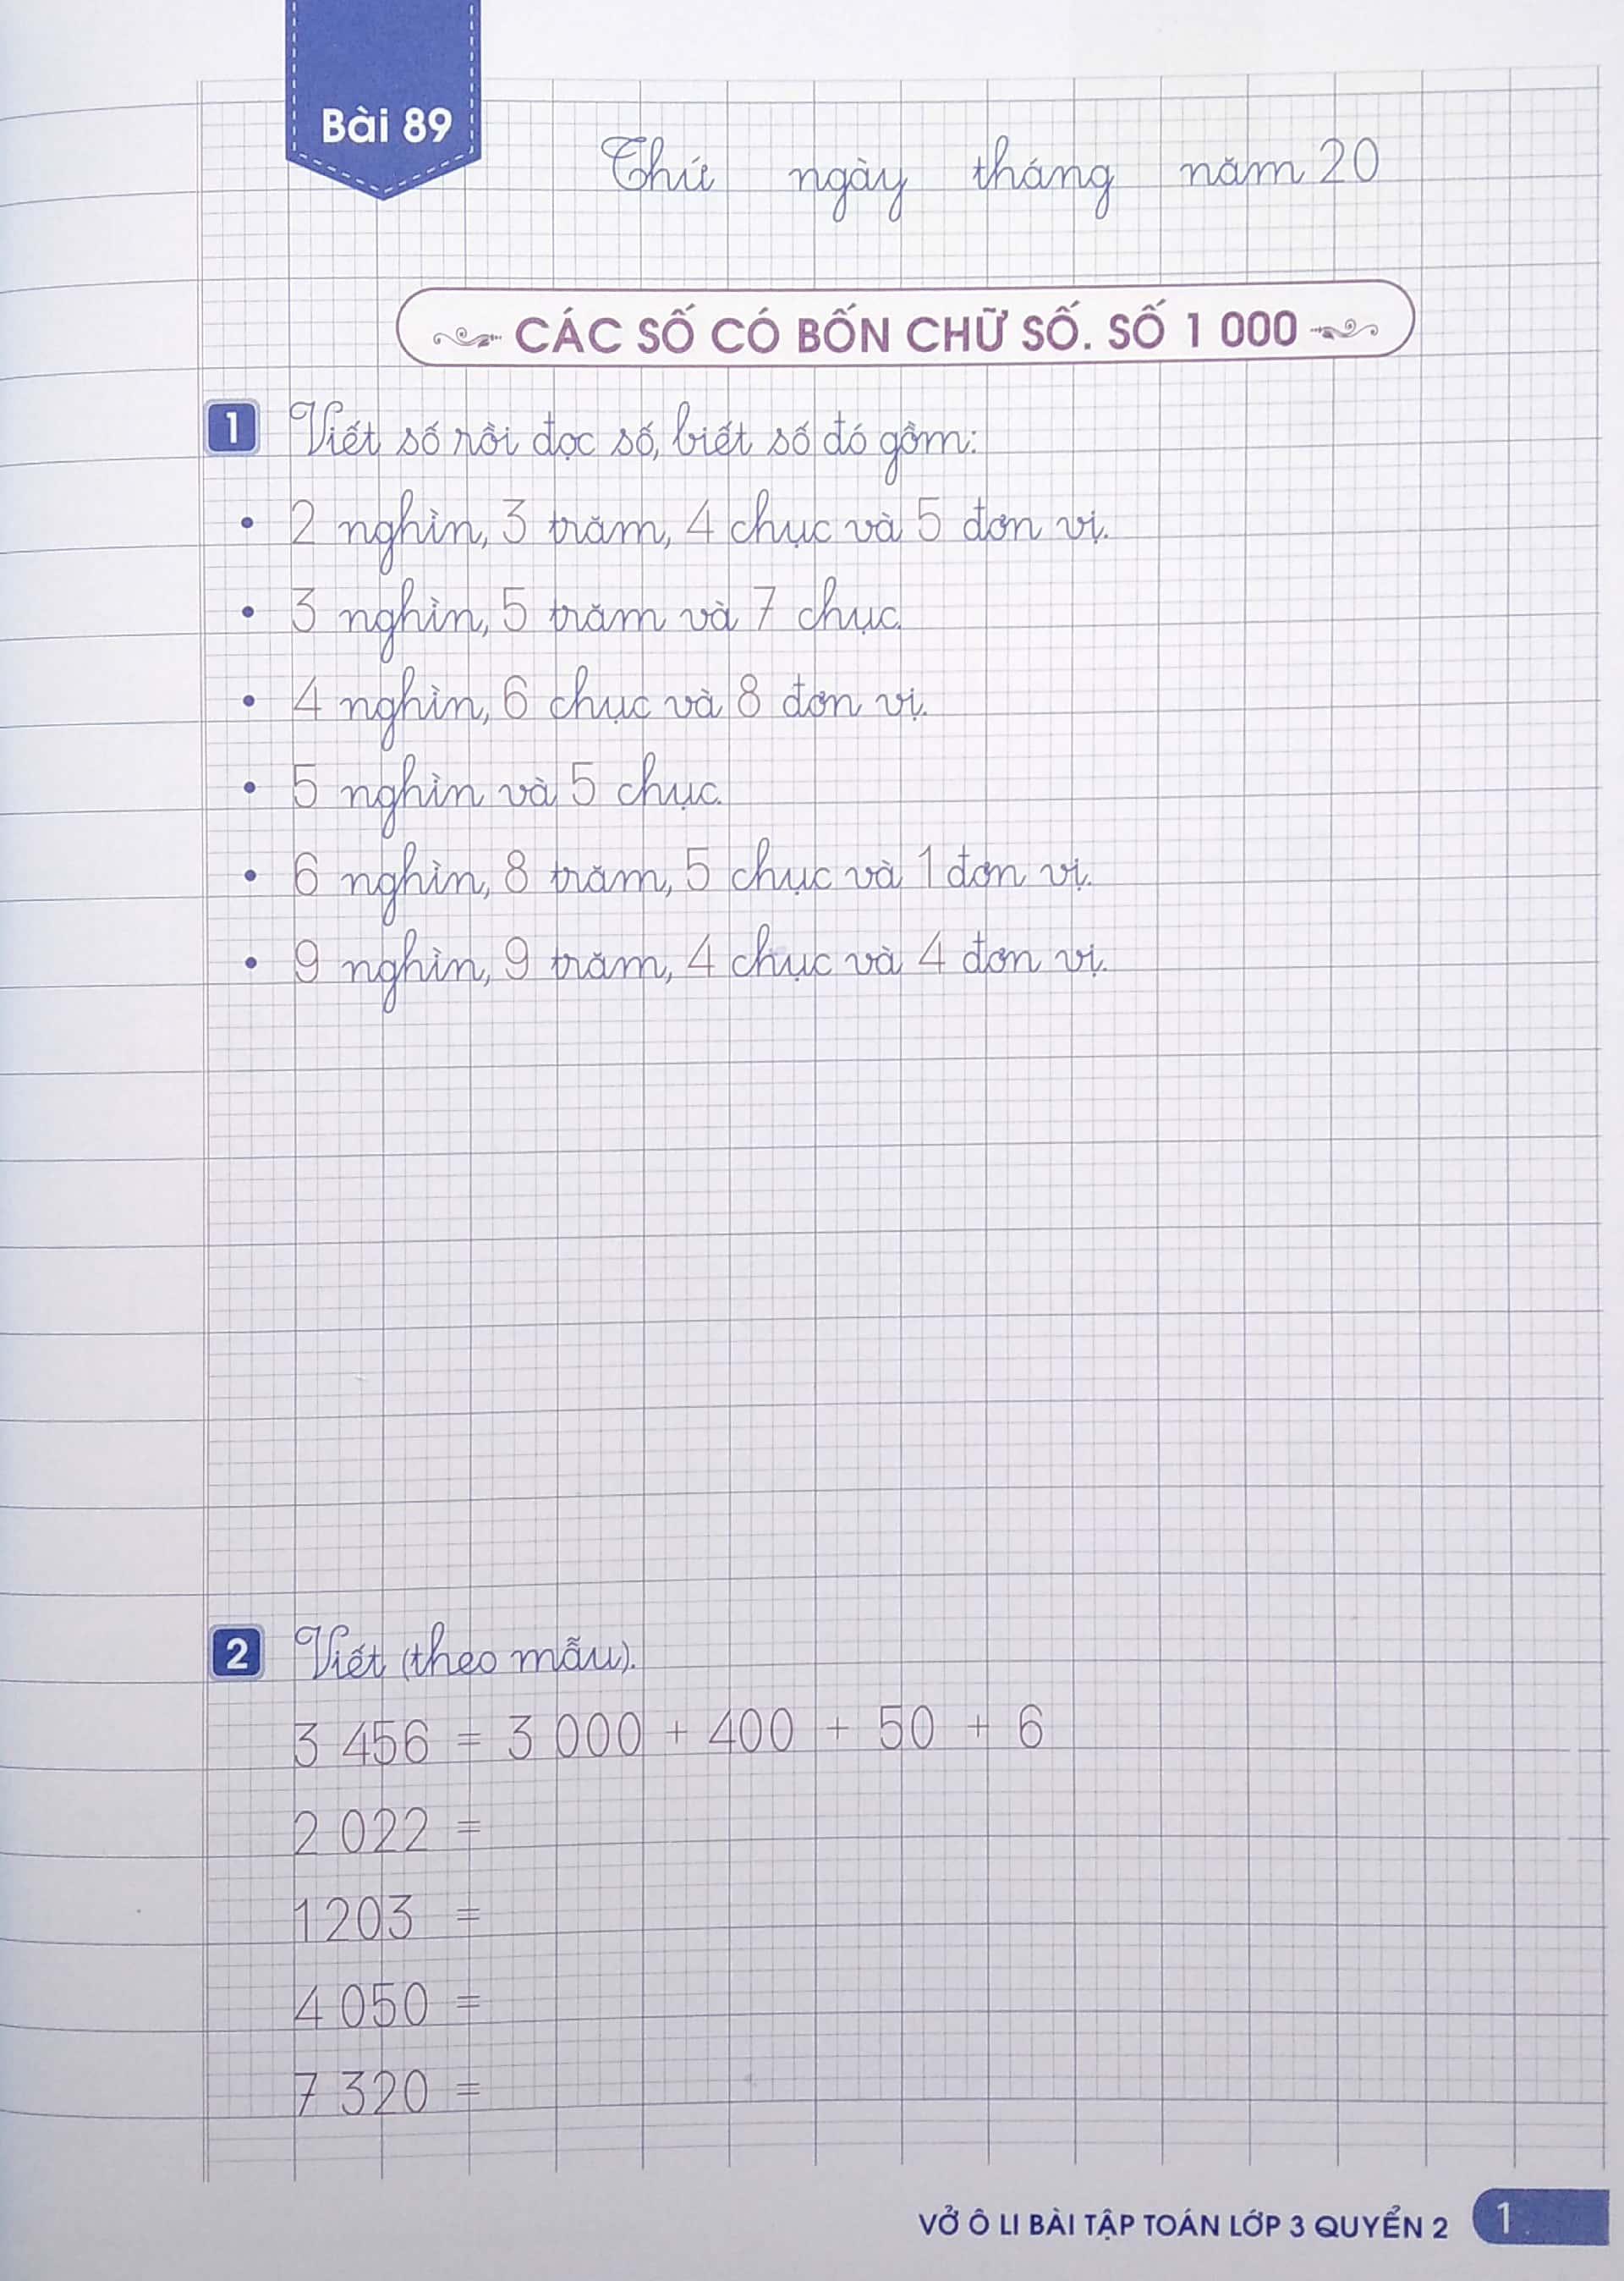 Bài 89
Thứ ngày tháng năm 20
CÁC SỐ CÓ BỐN CHỮ SỐ. SỐ 1 000
1 Viết số rồi đọc số, biết số đó gồm:
• 2 nghìn, 3 trăm, 4 chục và 5 đơn vị.
• 3 nghìn, 5 trăm và 7 chục.
• 4 nghìn, 6 chục và 8 đơn vị.
• 5 nghìn và 5 chục.
• 6 nghìn, 8 trăm, 5 chục và 1 đơn vị.
• 9 nghìn, 9 trăm, 4 chục và 4 đơn vị.
2 Viết (theo mẫu).
3 456 = 3 000 + 400 + 50 + 6
2 022 =
1 203 =
4 050 =
7 320 =
VỞ Ô LI BÀI TẬP TOÁN LỚP 3 QUYỂN 2 1